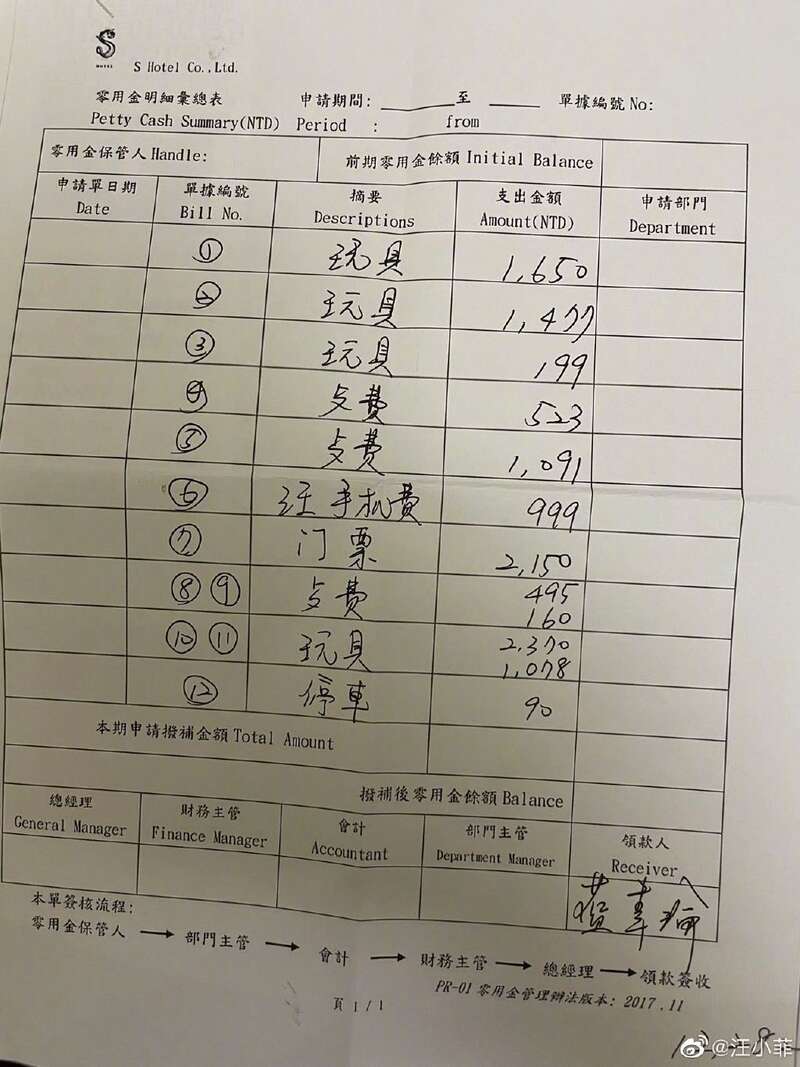 S
HOTEL
S Hotel Co.,Ltd.
零用金明細彙總表 申請期間: 至 單據編號 No:
Petty Cash Summary(NTD) Period : from
零用金保管人 Handle: 前期零用金餘額 Initial Balance
申請單日期 單據編號 摘要 支出金額 申請部門
Date Bill No. Descriptions Amount(NTD) Department
① 玩具 1,650
② 玩具 1,477
③ 玩具 199
④ 歺費 523
⑤ 歺費 1,091
⑥ 汪手机費 999
⑦ 门票 2,150
⑧ ⑨ 歺費 495
160
⑩ ⑪ 玩具 2,370
1,078
⑫ 停車 90
本期申請撥補金額 Total Amount
撥補後零用金餘額 Balance
總經理 財務主管 會計 部門主管 領款人
General Manager Finance Manager Accountant Department Manager Receiver
本單簽核流程:
零用金保管人 → 部門主管 → 會計 → 財務主管 → 總經理 → 領款簽收
PR-01 零用金管理辦法版本: 2017.11
頁 1/1
@汪小菲